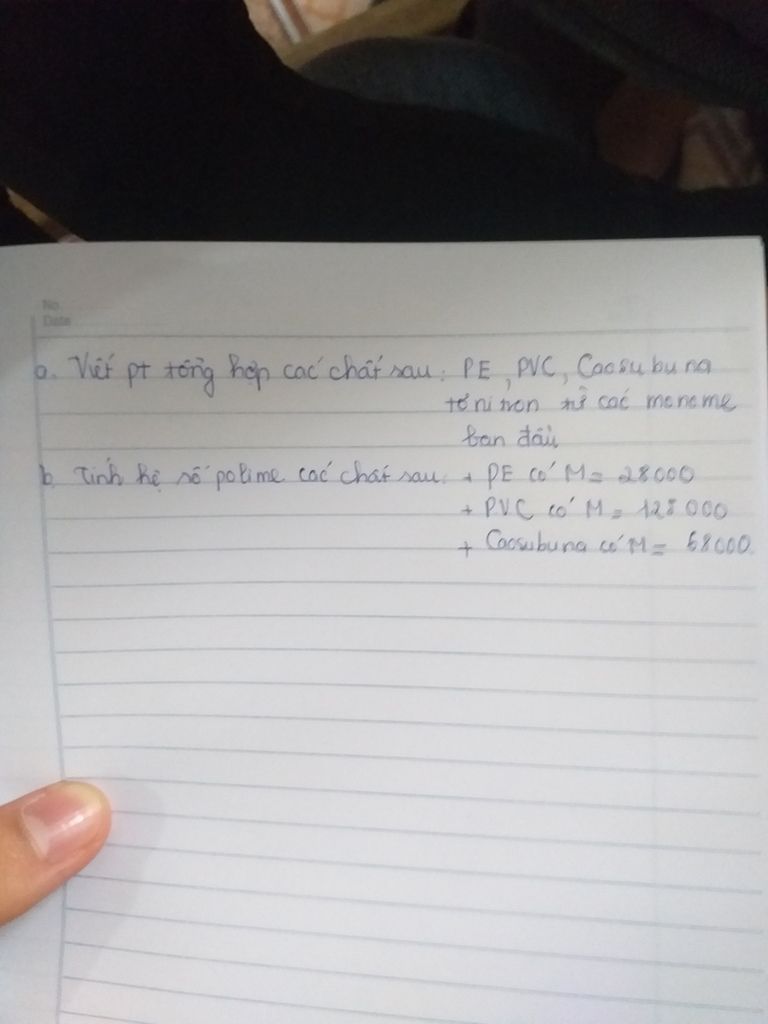 No.
Date
a. Viết pt tổng hợp các chất sau: PE, PVC, Caosubuna
tơ nitron từ các monome
ban đầu
b. Tính hệ số polime các chất sau: + PE có M = 28000
+ PVC có M = 128000
+ Caosubuna có M = 68000.